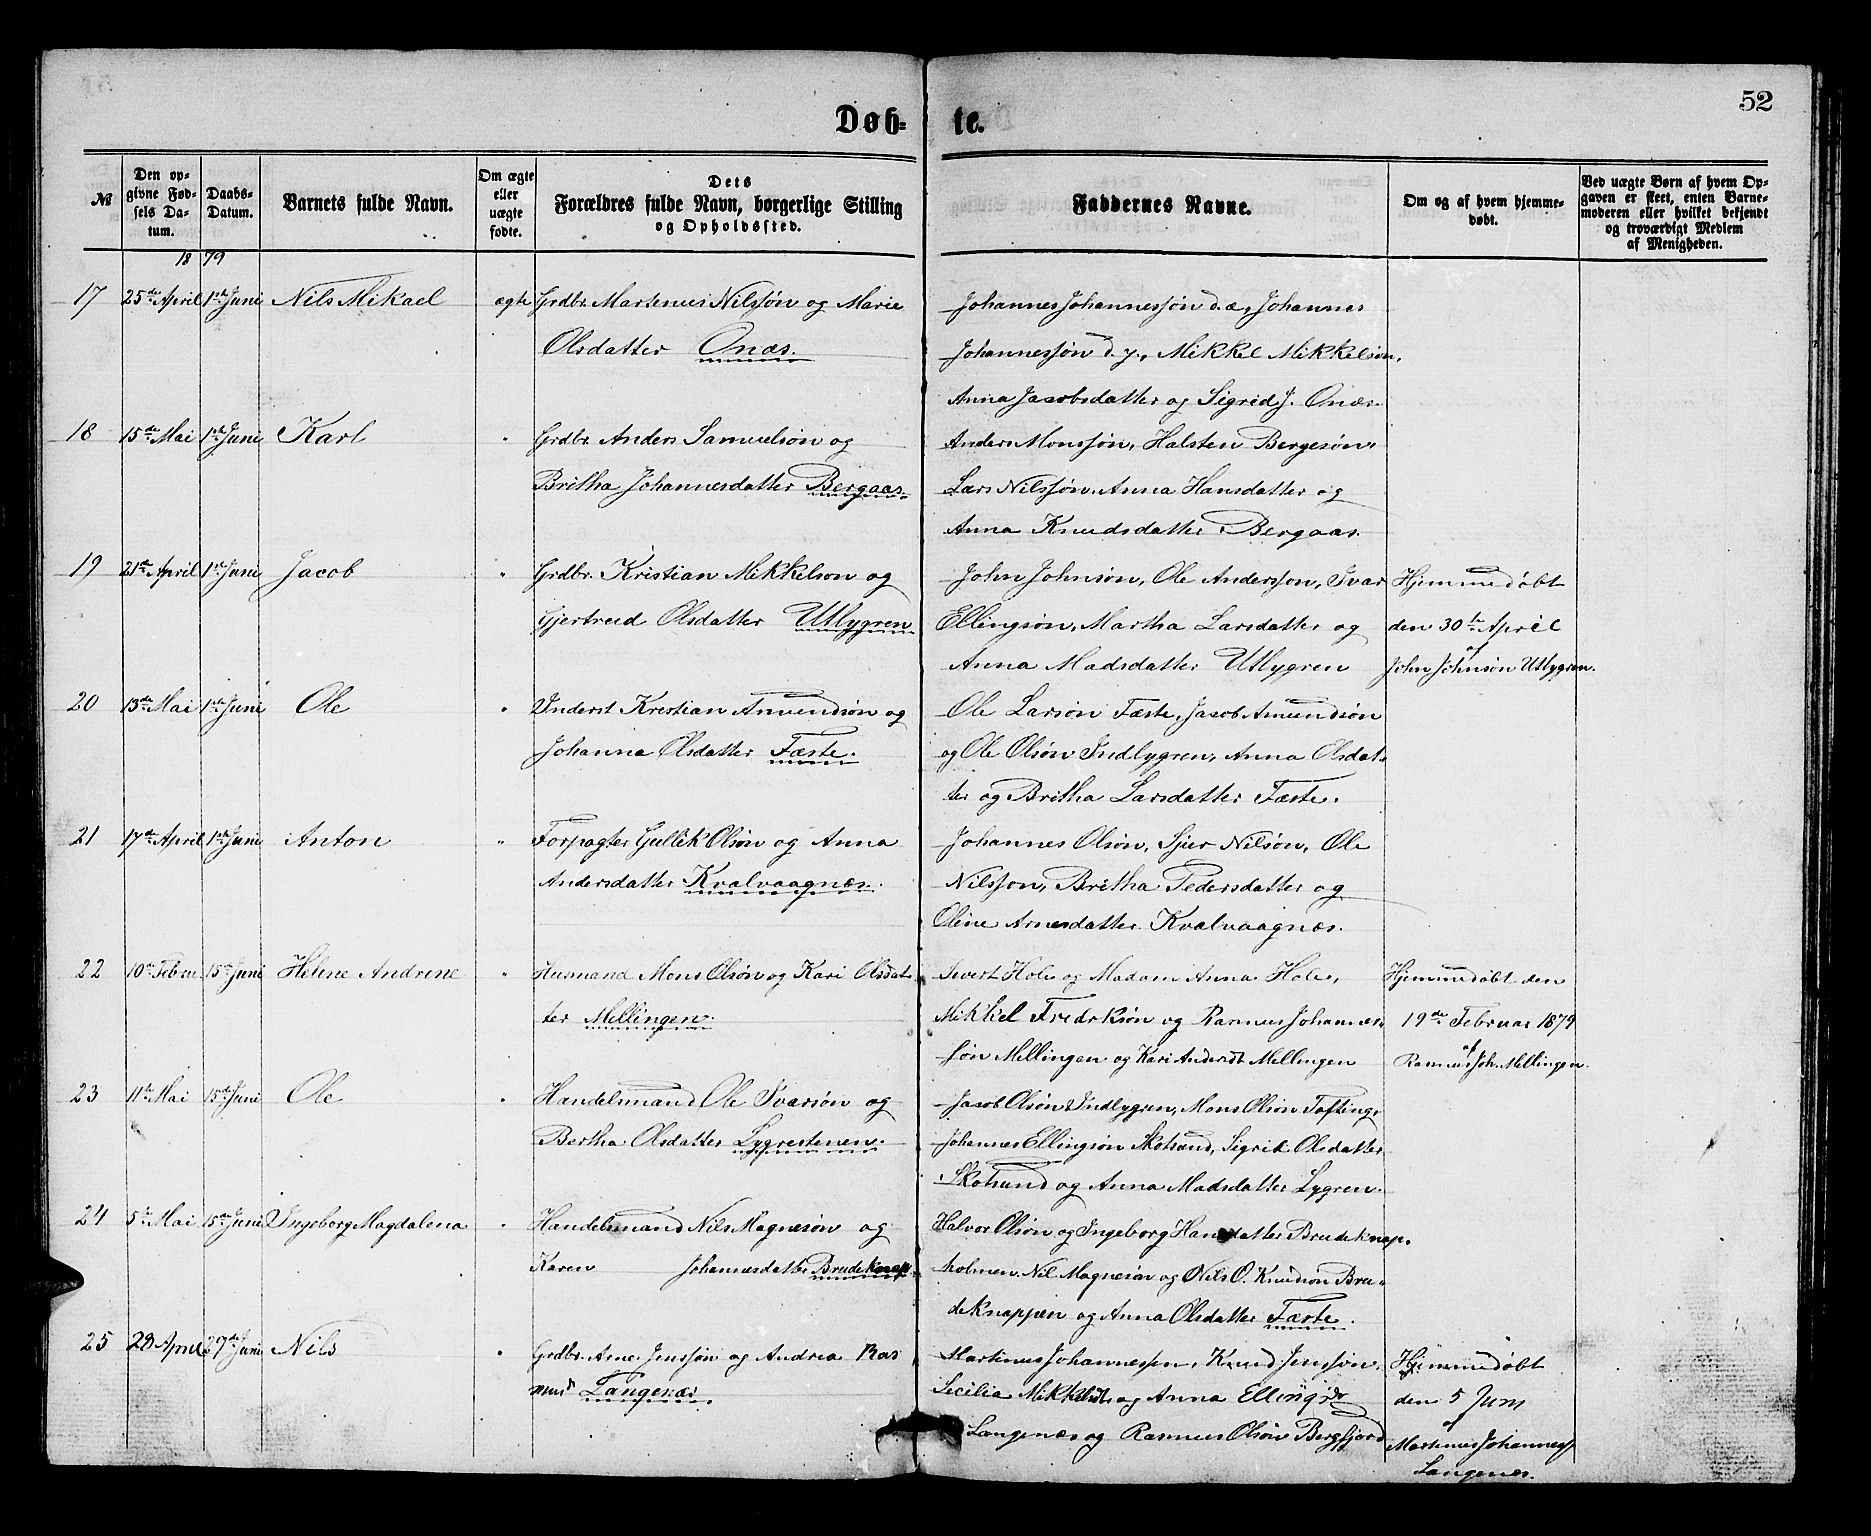 52
Døb-te.
№
Den op-
givne Fød-
sels Da-
tum.
Daabs-
Datum.
Barnets fulde Navn.
Om ægte
eller
uægte
fødte.
Dets
Forældres fulde Navn, borgerlige Stilling
og Opholdssted.
Faddernes Navne.
Om og af hvem hjemme-
døbt.
Ved uægte Børn af hvem Op-
gaven er skeet, enten Barne-
moderen eller hvilket bekjendt
og troværdigt Medlem
af Menigheden.
1879
17 25de April 1ste Juni Nils Mikael ægte Grdbr. Martinus Nilssøn og Marie
Olsdatter Onæs.
Johannes Johannessøn d.æ, Johannes
Johannessøn d.y., Mikkel Mikkelsøn,
Anna Jacobsdatter og Sigrid J. Onæs.
18 15de Mai 1ste Juni Karl " Grdbr. Anders Samuelsøn og
Britha Johannesdatter Bergaas.
Anders Monssøn, Halsten Bergesøn,
Lars Nilssøn, Anna Hansdatter og
Anna Knudsdatter Bergaas.
19 21de April 1ste Juni Jacob " Grdbr. Kristian Mikkelson og
Gjertrud Olsdatter Utlygren
John Johnsøn, Ole Anderssøn, Ivar
Ellingsøn, Martha Larsdatter og
Anna Madsdatter Utlygren
Hjemmedøbt
den 30te April
af
John Johnsøn Utlygren.
20 13de Mai 1ste Juni Ole " Inderst Kristian Amundsøn og
Johanna Olsdatter Fæste.
Ole Larsøn Fæste, Jacob Amundsøn
og Ole Olsøn Indlygren, Anna Olsdat-
ter og Britha Larsdatter Fæste.
21 17de April 1ste Juni Anton " Forpagter Gullik Olsøn og Anna
Andersdatter Kvalvaagnæs.
Johannes Olsøn, Sjur Nilsøn, Ole
Nilssøn, Britha Pedersdatter og
Oline Arnesdatter Kvalvaagnæs.
22 10de Febru 15de Juni Helene Andrine " Husmand Mons Olsøn og Kari Olsdat-
ter Mellingen.
Sivert Hole og Madam Anna Hole,
Mikkel Fredriksøn og Rasmus Johannes-
søn Mellingen og Kari Andersdt Mellingen
Hjemmedøbt den
19de Februar 1879
af
Rasmus Joh. Mellingen.
23 11te Mai 15de Juni Ole " Handelsmand Ole Ivarsøn og
Bertha Olsdatter Lygrestenen.
Jacob Olsøn Indlygren, Mons Olsøn Tofting,
Johannes Ellingsøn Skotsund, Sigrid Olsdatter
Skotsund og Anna Madsdatter Lygren.
24 5te Mai 15de Juni Ingeborg Magdalena " Handelsmand Nils Magnesøn og
Karen Johannesdatter Brudeknap.
Halvor Olsøn og Ingeborg Hansdatter Brudeknap-
holmen, Nil Magnesøn og Nils O. Knudsøn Bru-
deknappen og Anna Olsdatter Fæste.
25 28 April 29de Juni Nils " Grdbr. Arne Jenssøn og Andrea Ras
musd Langenæs.
Martinus Johannessen, Knud Jenssøn,
Secilia Mikkelsdt og Anna Ellingsdr
Langenæs og Rasmus Olsøn Bergfjord
Hjemmedøbt
den 5 Juni
af
Martinus Johanness
Langenæs.